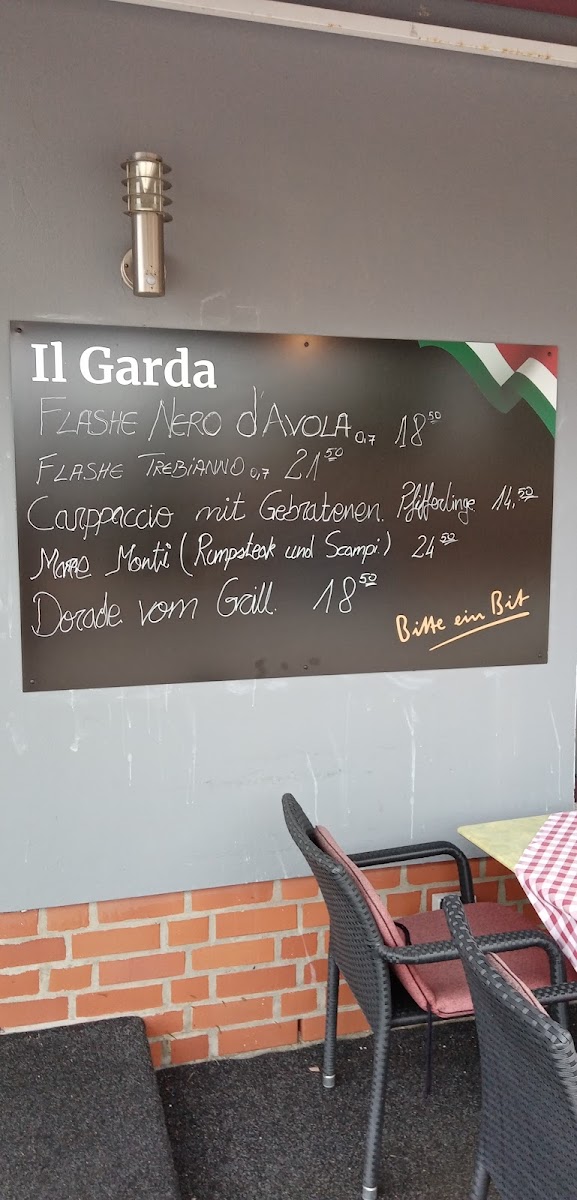 Il Garda
FLASHE NERO d'AVOLA 0,7 18 50
FLASHE TREBIANNO 0,7 21 50
Carppaccio mit Gebratenen. Pfifferlinge 14.50
Mare Monti (Rumpsteak und Scampi) 24 50
Dorade. vom Grill. 18 50
Bitte ein Bit